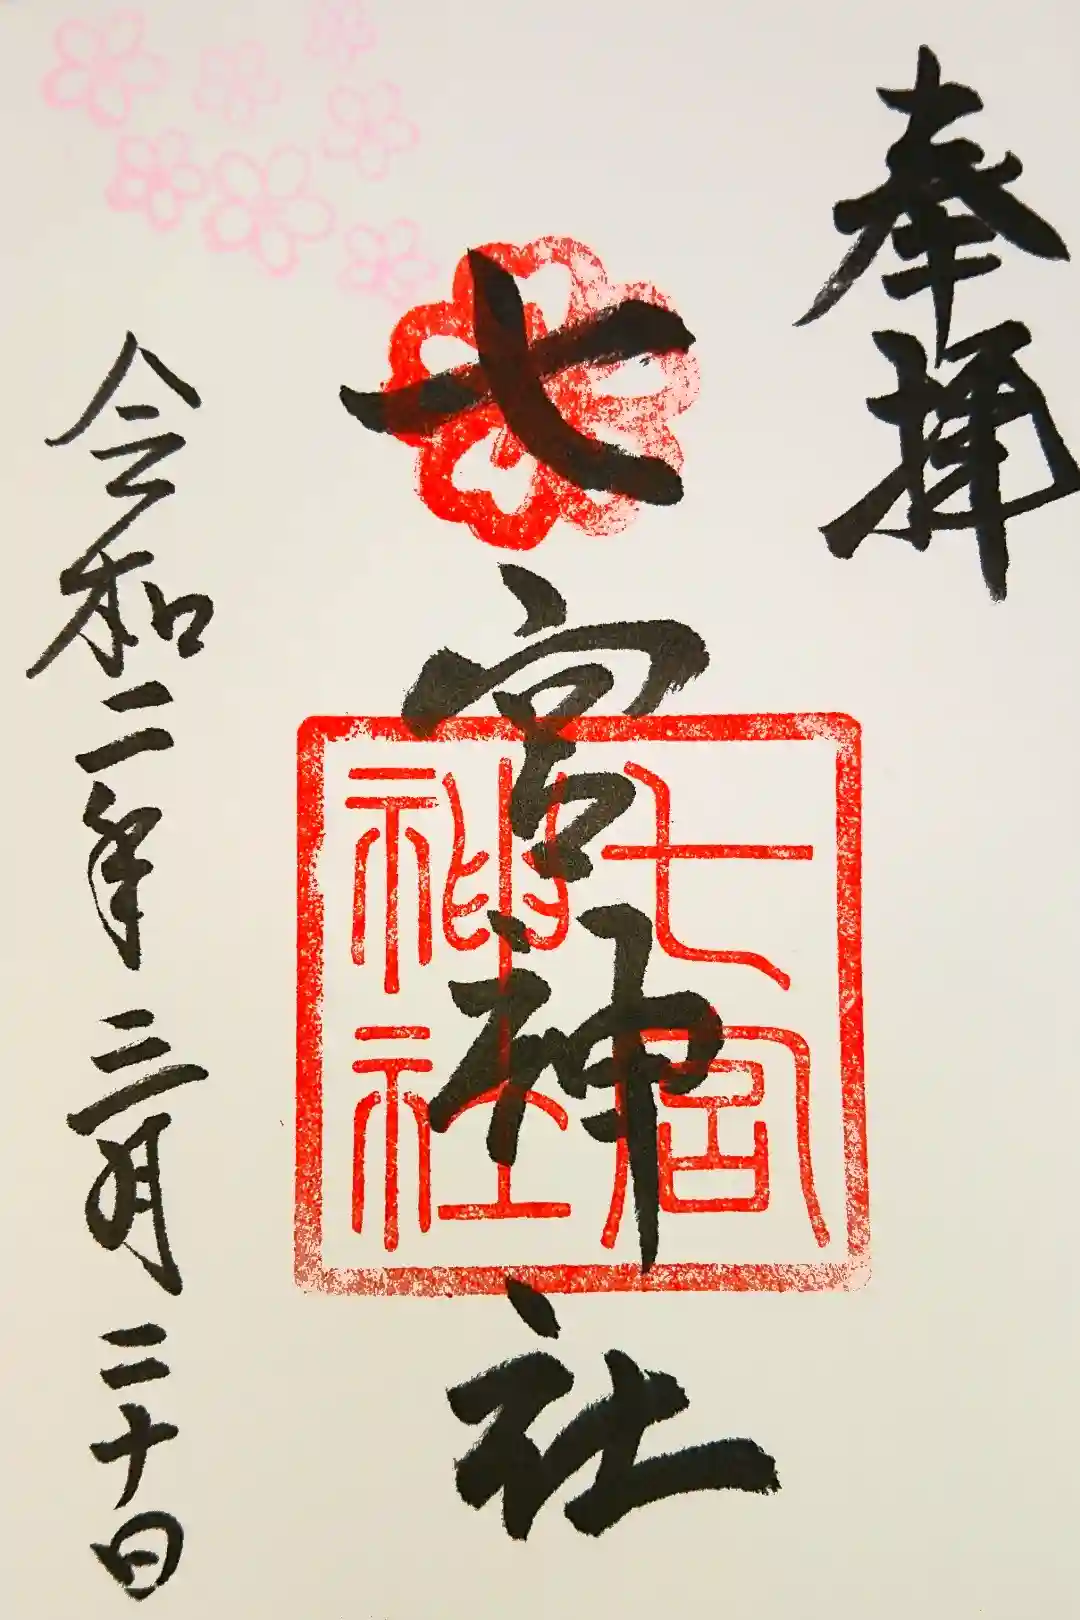 奉拝
七宮神社
七宮
神社
令和二年三月二十日